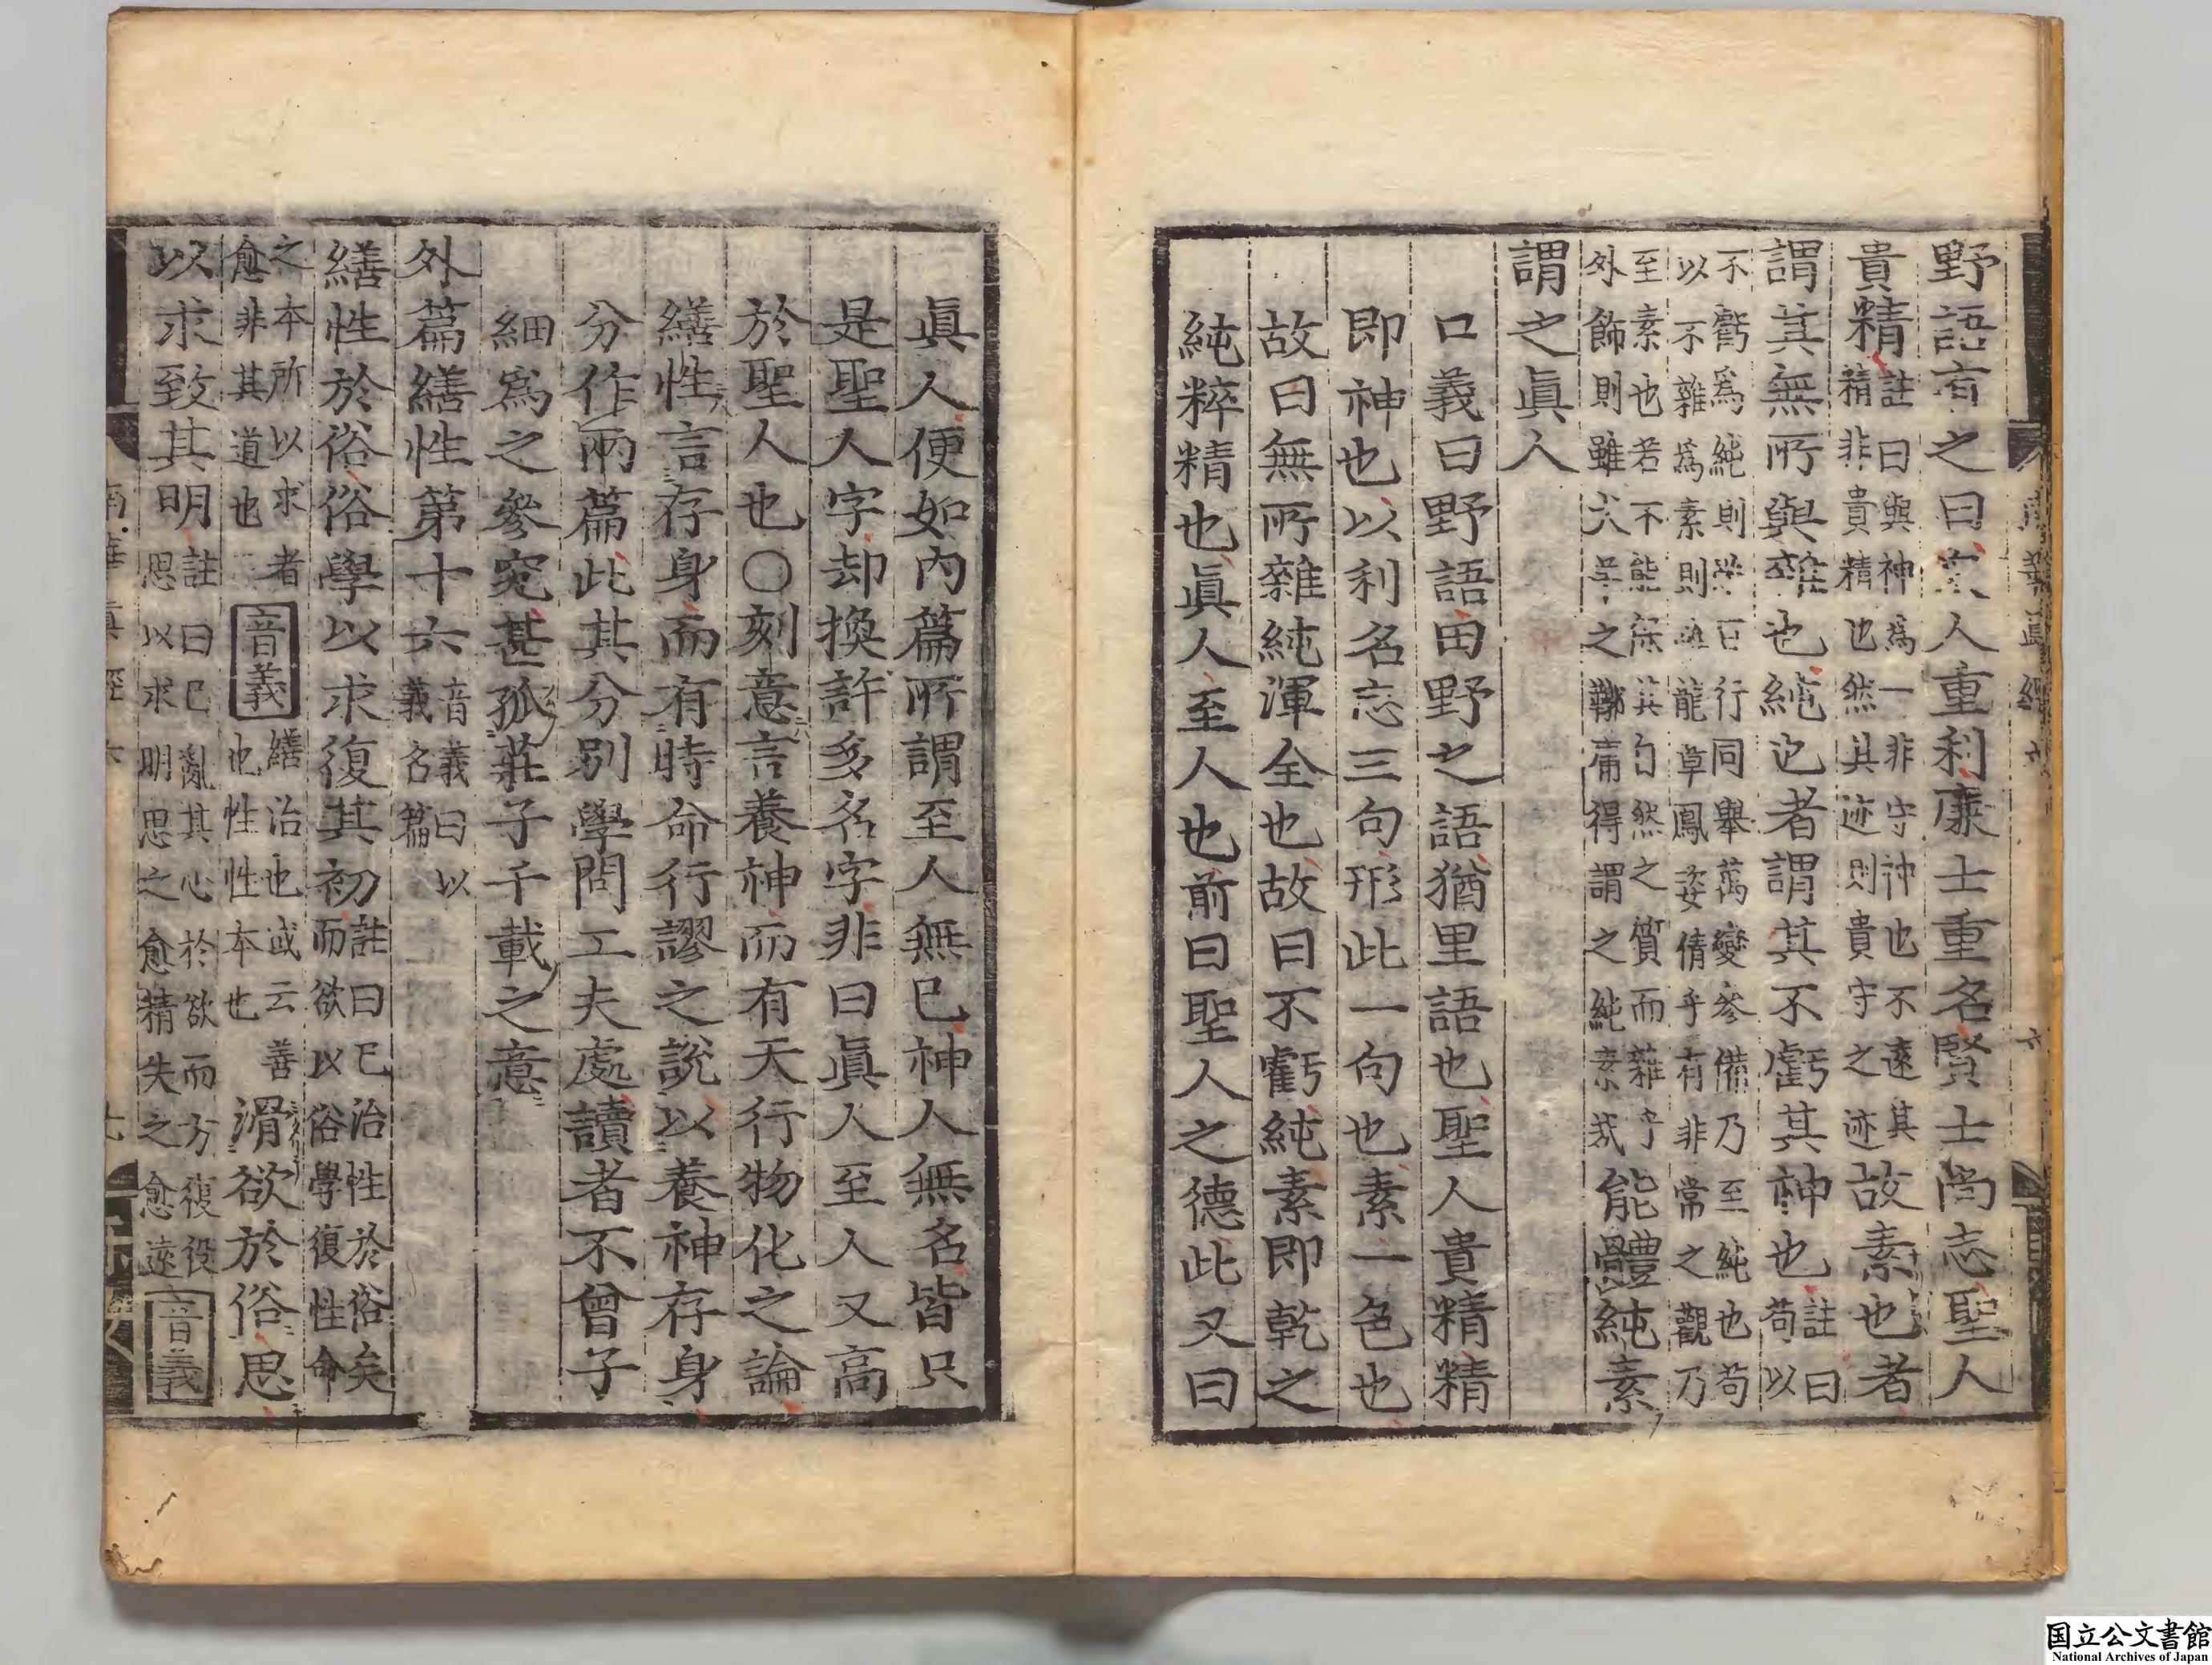 野語有之曰衆人重利廉士重名賢士尚志聖人
貴精註曰與神為一非守神也不遠其
精非貴精也然其迹則貴守之迹故素也者
謂其無所與雜也純也者謂其不虧其神也註曰
苟以
不虧為純則雖百行同舉萬變參備乃至純也苟
以不雜為素則雖龍章鳳姿倩乎有非常之觀乃
至素也若不能保其自然之質而雜乎
外飾則雖犬羊之鞹庸得謂之純素哉能體純素
謂之眞人
口義曰野語田野之語猶里語也聖人貴精精
即神也以利名志三句形此一句也素一色也
故曰無所雜純渾全也故曰不虧純素即乾之
純粹精也眞人至人也前曰聖人之德此又曰
眞人便如內篇所謂至人無已神人無名皆只
是聖人字却換許多名字非曰眞人至人又高
於聖人也〇刻意言養神而有天行物化之論
繕性言存身而有時命行謬之說以養神存身
分作兩篇此其分別學問工夫處讀者不曾子
細爲之參究甚孤莊子千載之意
外篇繕性第十六音義曰以
義名篇
繕性於俗俗學以求復其初註曰已治性於俗矣
而欲以俗學復性命
之本所以求者
愈非其道也音義繕治也或云善
也性性本也滑欲於俗思
以求致其明註曰已亂其心於欲而方復役
思以求明思之愈精失之愈遠音義
国立公文書館
National Archives of Japan